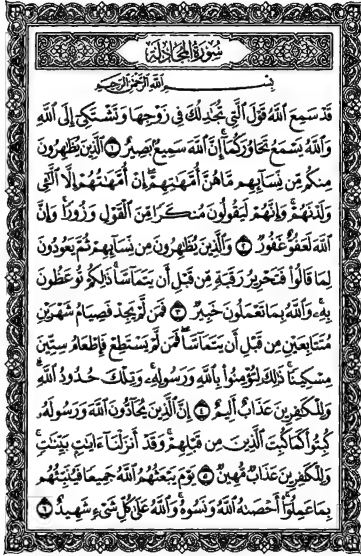 سُورَةُ المُجَادلَة
بِسْمِ اللَّهِ الرَّحْمَٰنِ الرَّحِيمِ
قَدْ سَمِعَ اللَّهُ قَوْلَ الَّتِي تُجَٰدِلُكَ فِي زَوْجِهَا وَتَشْتَكِي إِلَى اللَّهِ
وَاللَّهُ يَسْمَعُ تَحَاوُرَكُمَا إِنَّ اللَّهَ سَمِيعٌ بَصِيرٌ ١ الَّذِينَ يُظَٰهِرُونَ
مِنكُم مِّن نِّسَآئِهِم مَّا هُنَّ أُمَّهَٰتِهِمْ إِنْ أُمَّهَٰتُهُمْ إِلَّا الَّٰٓـِٔي
وَلَدْنَهُمْ وَإِنَّهُمْ لَيَقُولُونَ مُنكَرًا مِّنَ الْقَوْلِ وَزُورًا وَإِنَّ
اللَّهَ لَعَفُوٌّ غَفُورٌ ٢ وَالَّذِينَ يُظَٰهِرُونَ مِن نِّسَآئِهِمْ ثُمَّ يَعُودُونَ
لِمَا قَالُوا فَتَحْرِيرُ رَقَبَةٍ مِّن قَبْلِ أَن يَتَمَآسَّا ذَٰلِكُمْ تُوعَظُونَ
بِهِ وَاللَّهُ بِمَا تَعْمَلُونَ خَبِيرٌ ٣ فَمَن لَّمْ يَجِدْ فَصِيَامُ شَهْرَيْنِ
مُتَتَابِعَيْنِ مِن قَبْلِ أَن يَتَمَآسَّا فَمَن لَّمْ يَسْتَطِعْ فَإِطْعَامُ سِتِّينَ
مِسْكِينًا ذَٰلِكَ لِتُؤْمِنُوا بِاللَّهِ وَرَسُولِهِ وَتِلْكَ حُدُودُ اللَّهِ
وَلِلْكَٰفِرِينَ عَذَابٌ أَلِيمٌ ٤ إِنَّ الَّذِينَ يُحَآدُّونَ اللَّهَ وَرَسُولَهُ
كُبِتُوا كَمَا كُبِتَ الَّذِينَ مِن قَبْلِهِمْ وَقَدْ أَنزَلْنَآ ءَايَٰتٍ بَيِّنَٰتٍ
وَلِلْكَٰفِرِينَ عَذَابٌ مُّهِينٌ ٥ يَوْمَ يَبْعَثُهُمُ اللَّهُ جَمِيعًا فَيُنَبِّئُهُم
بِمَا عَمِلُوا أَحْصَىٰهُ اللَّهُ وَنَسُوهُ وَاللَّهُ عَلَىٰ كُلِّ شَيْءٍ شَهِيدٌ ٦